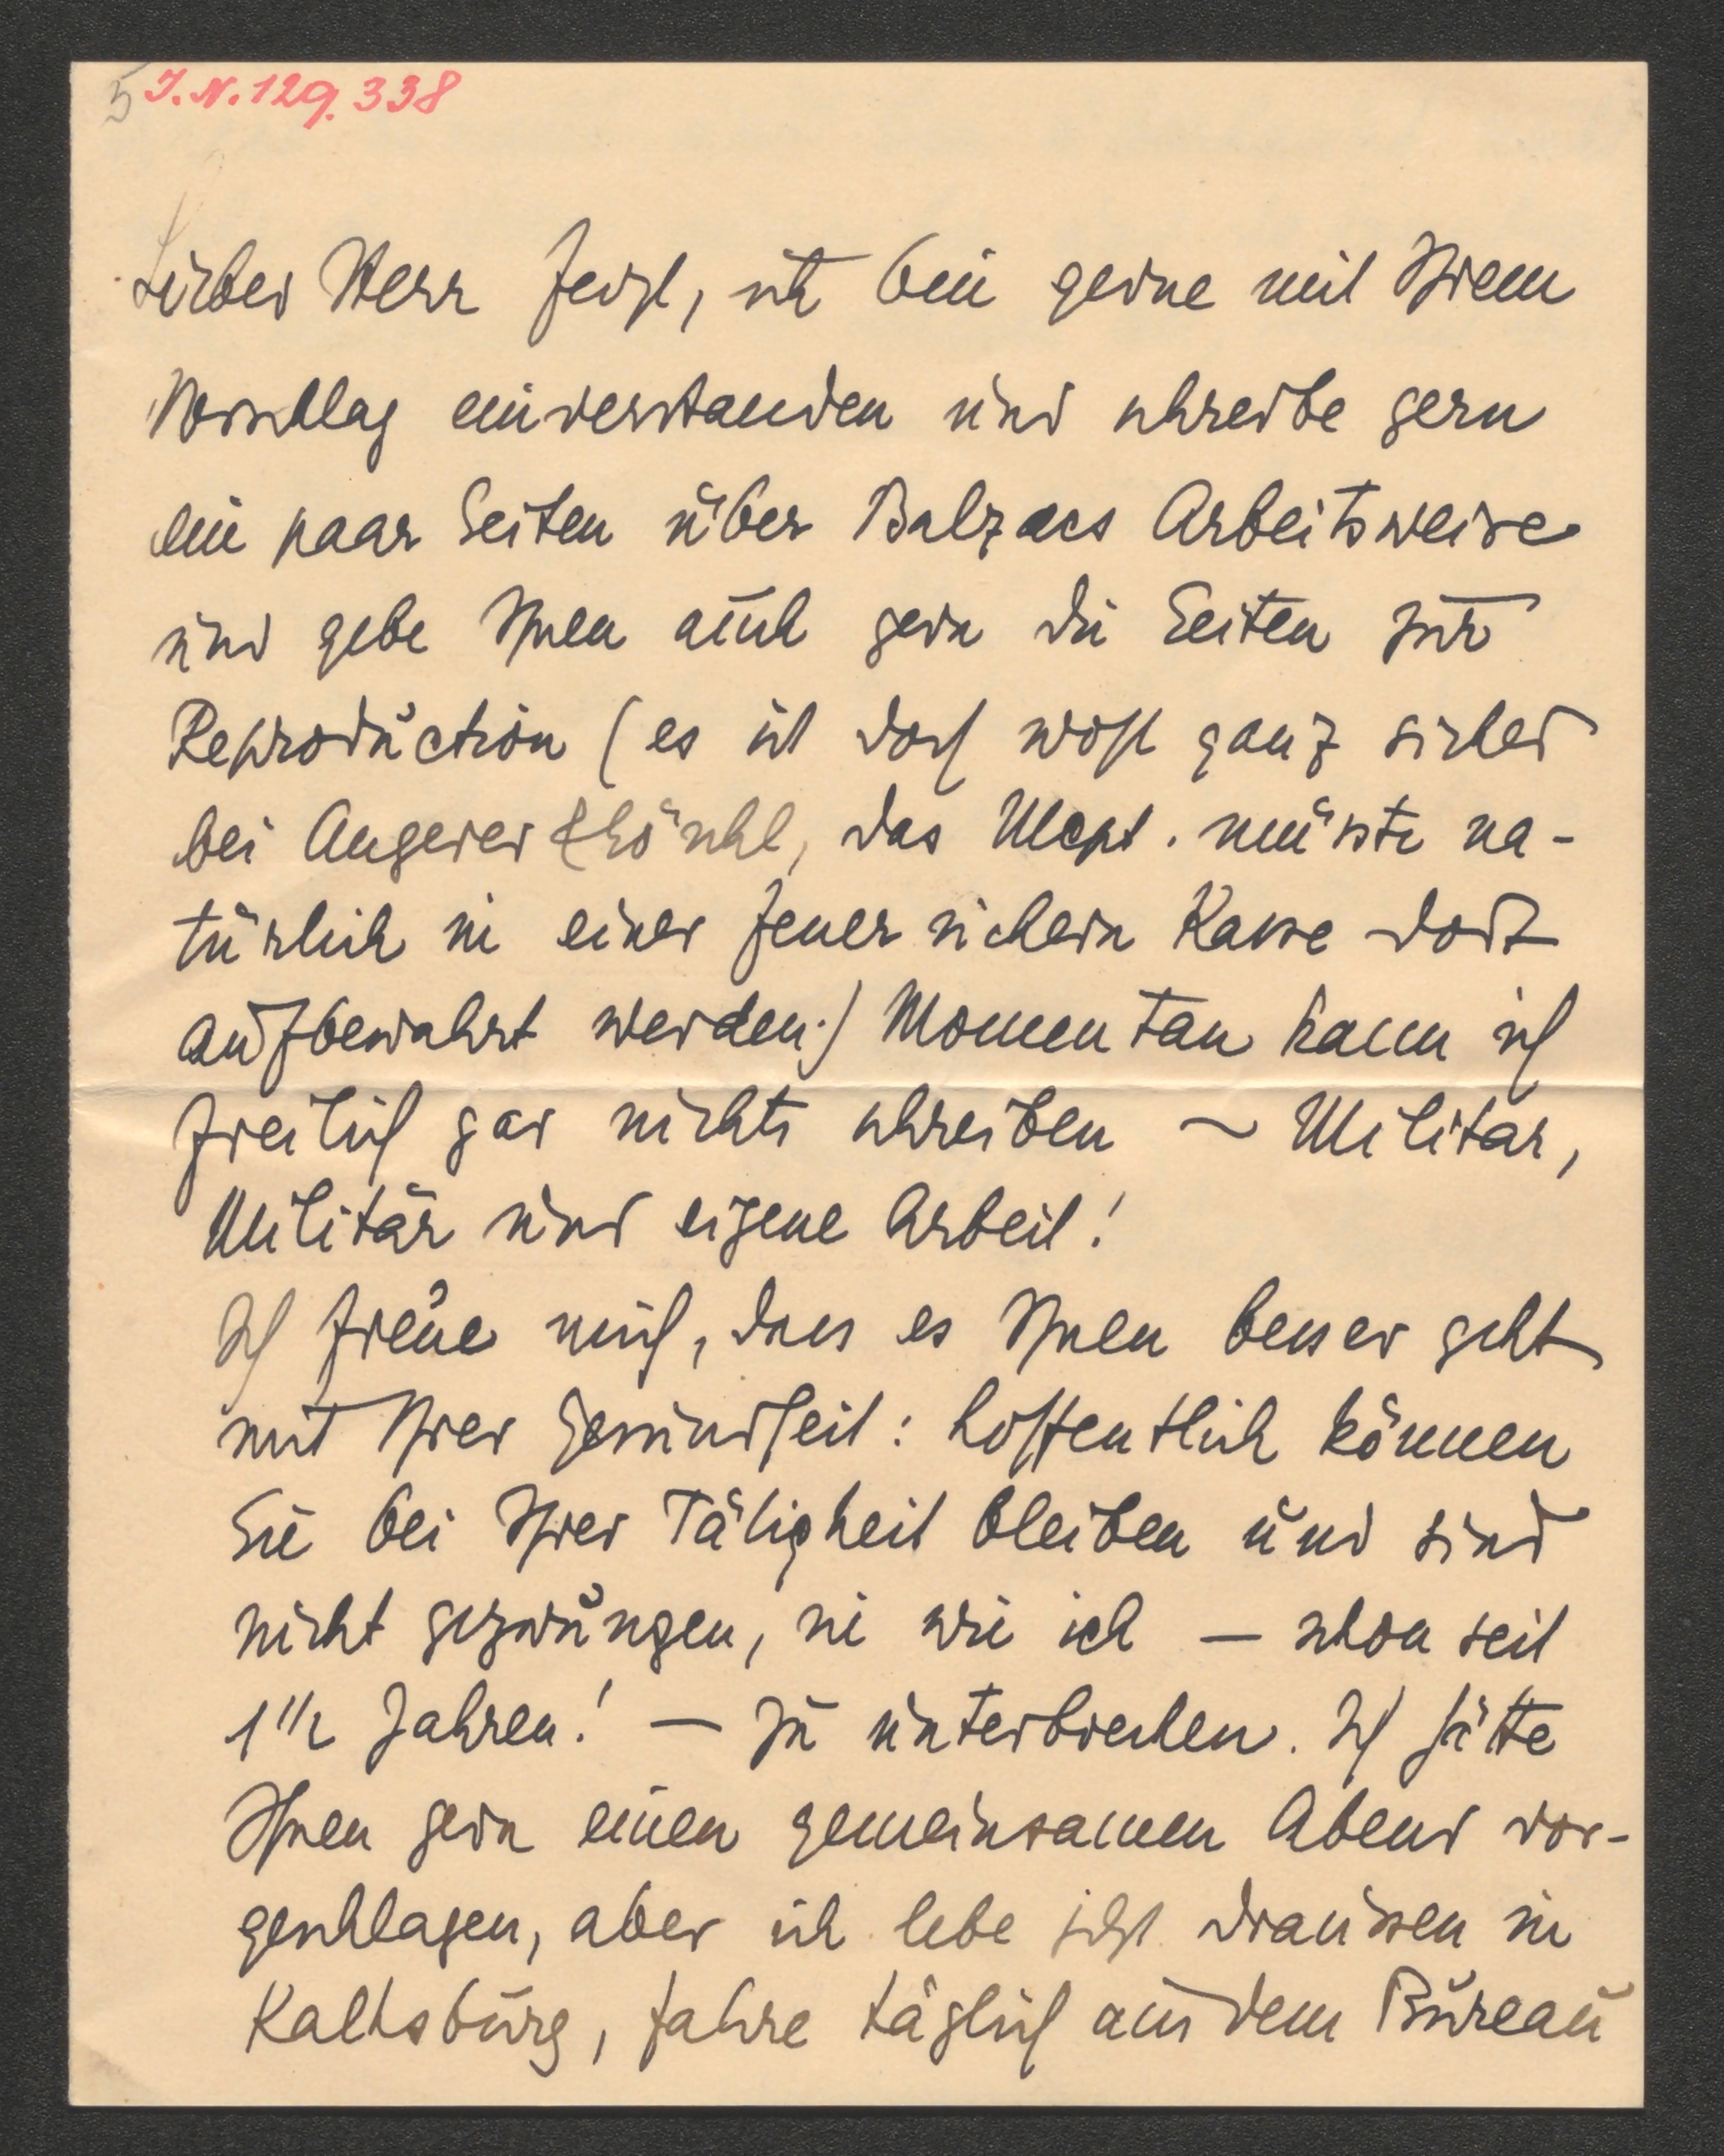 5 I.N. 129.338
Lieber Herr Feigl, ich bin gerne mit Ihrem
Vorschlag einverstanden und schreibe gern
ein paar Seiten über Balzacs Arbeitsweise
und gebe Ihnen auch gern die Seiten zur
Reproduction (es ist doch wohl ganz sicher
bei Angerer & Göschl, das Mcpt. müsste na-
türlich in einer feuersichern Kasse dort
aufbewahrt werden.) Momentan kann ich
freilich gar nichts schreiben – Militär,
Militär und eigene Arbeit!
Ich freue mich, dass es Ihnen besser geht
mit Ihrer Gesundheit: hoffentlich können
Sie bei Ihrer Tätigkeit bleiben und sind
nicht gezwungen, sie wie ich – schon seit
1 1/2 Jahren! – zu unterbrechen. Ich hätte
Ihnen gern einen gemeinsamen Abend vor-
geschlagen, aber ich lebe jetzt draussen in
Kalksburg, fahre täglich aus dem Bureau